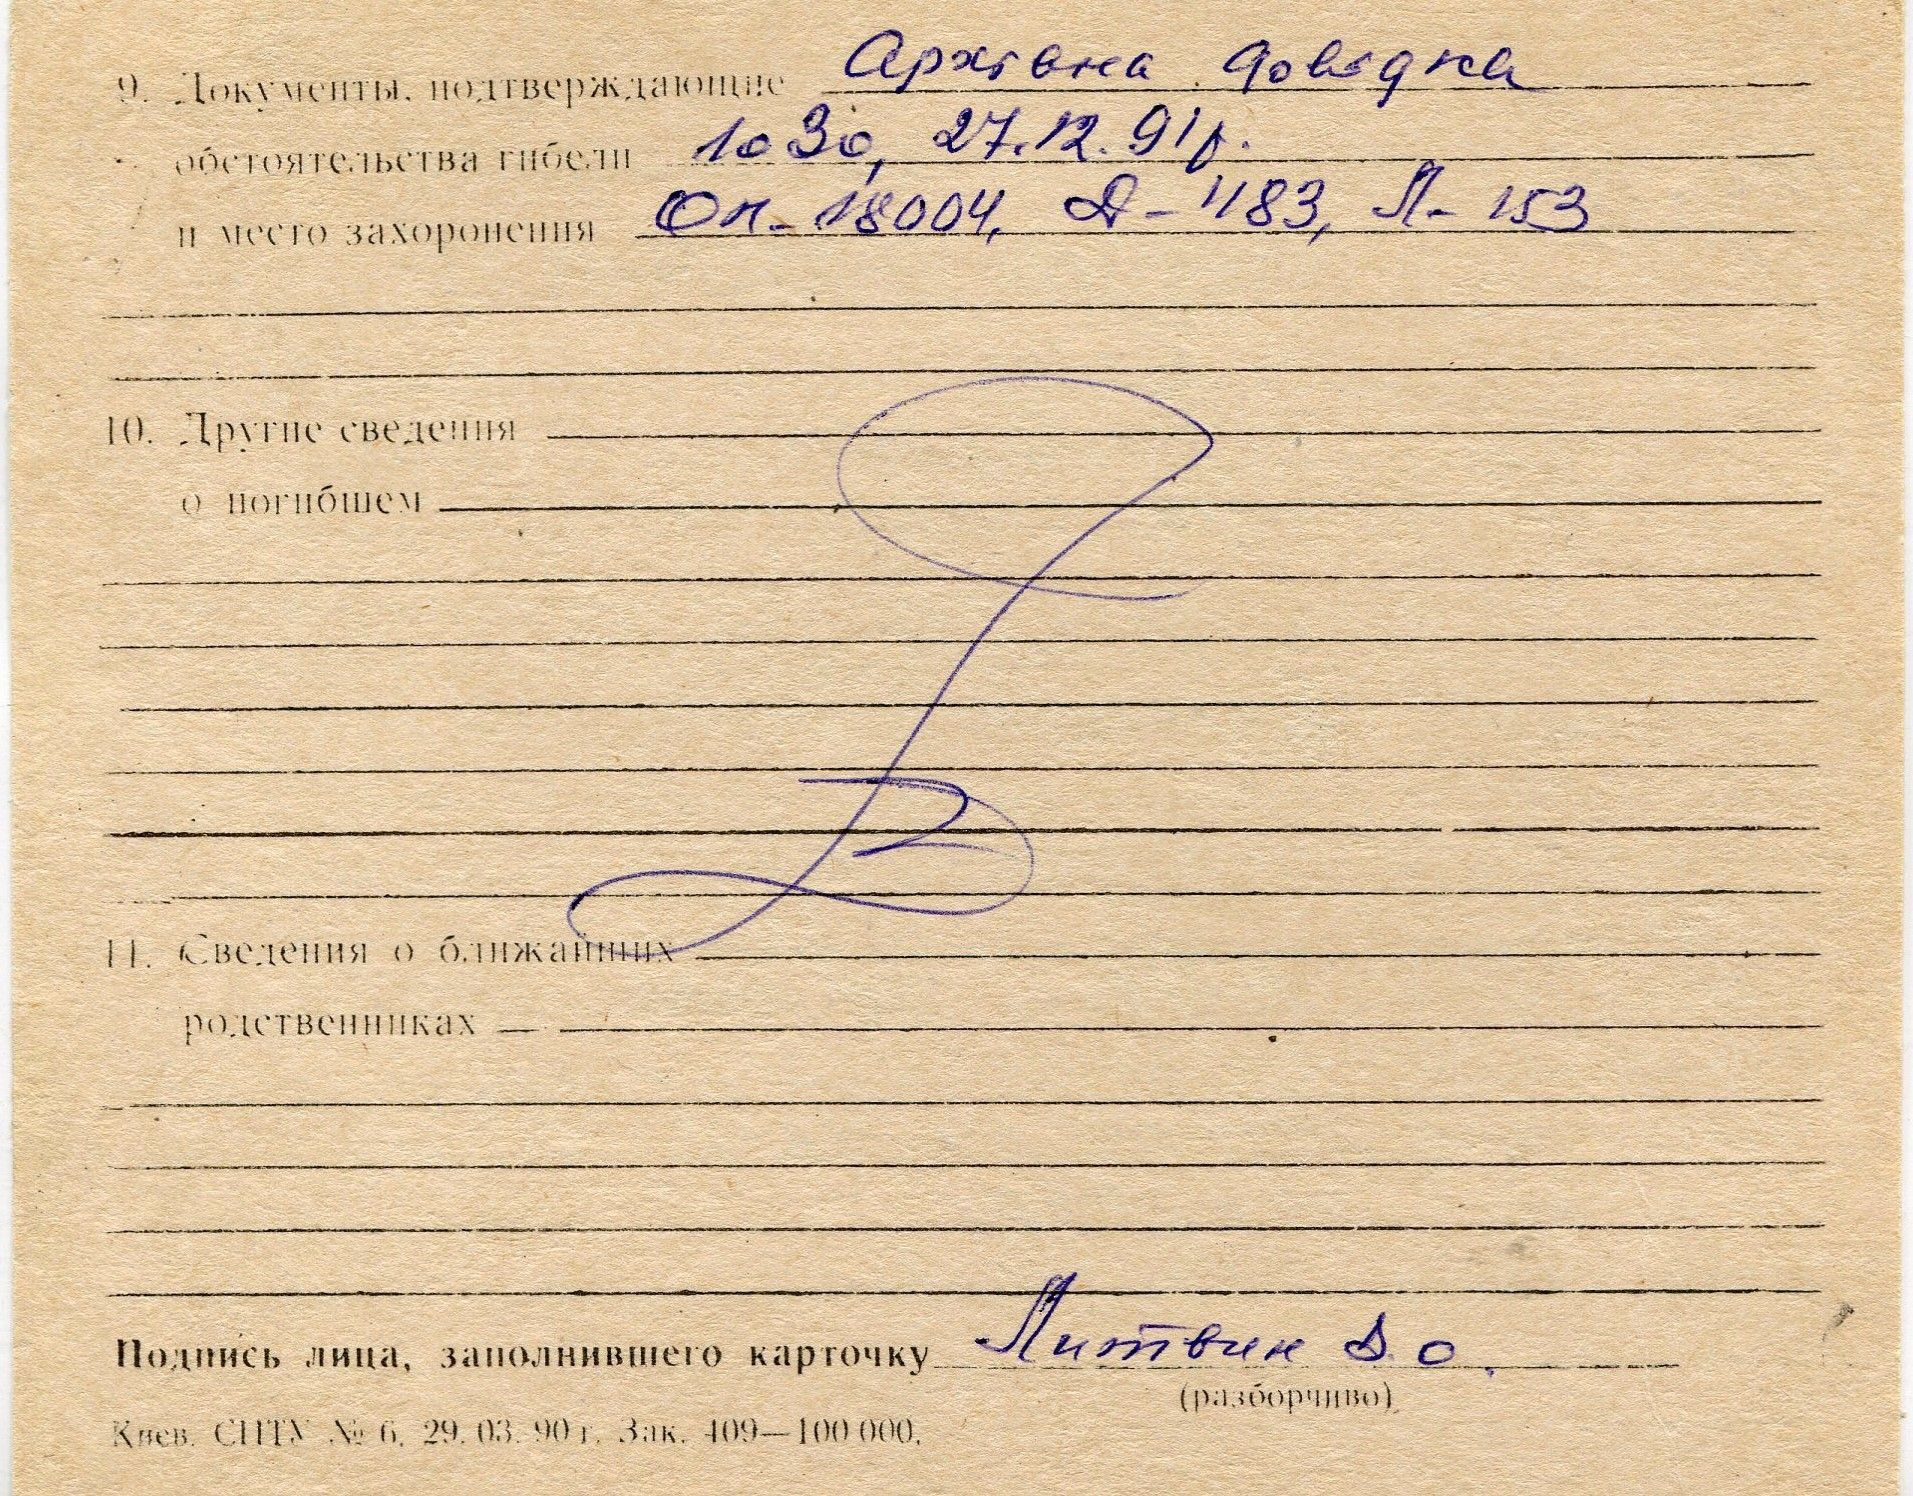 9. Документы, подтверждающие Архівна довідка
обстоятельства гибели 1030, 27.12.91р.
и место захоронения Оп-18004, Д-1183, Л-153
10. Другие сведения
о погибшем
11. Сведения о ближайших
родственниках
Подпись лица, заполнившего карточку Литвин В. О.
(разборчиво)
Киев. СПТУ № 6. 29.03.90 г. Зак. 409—100 000.